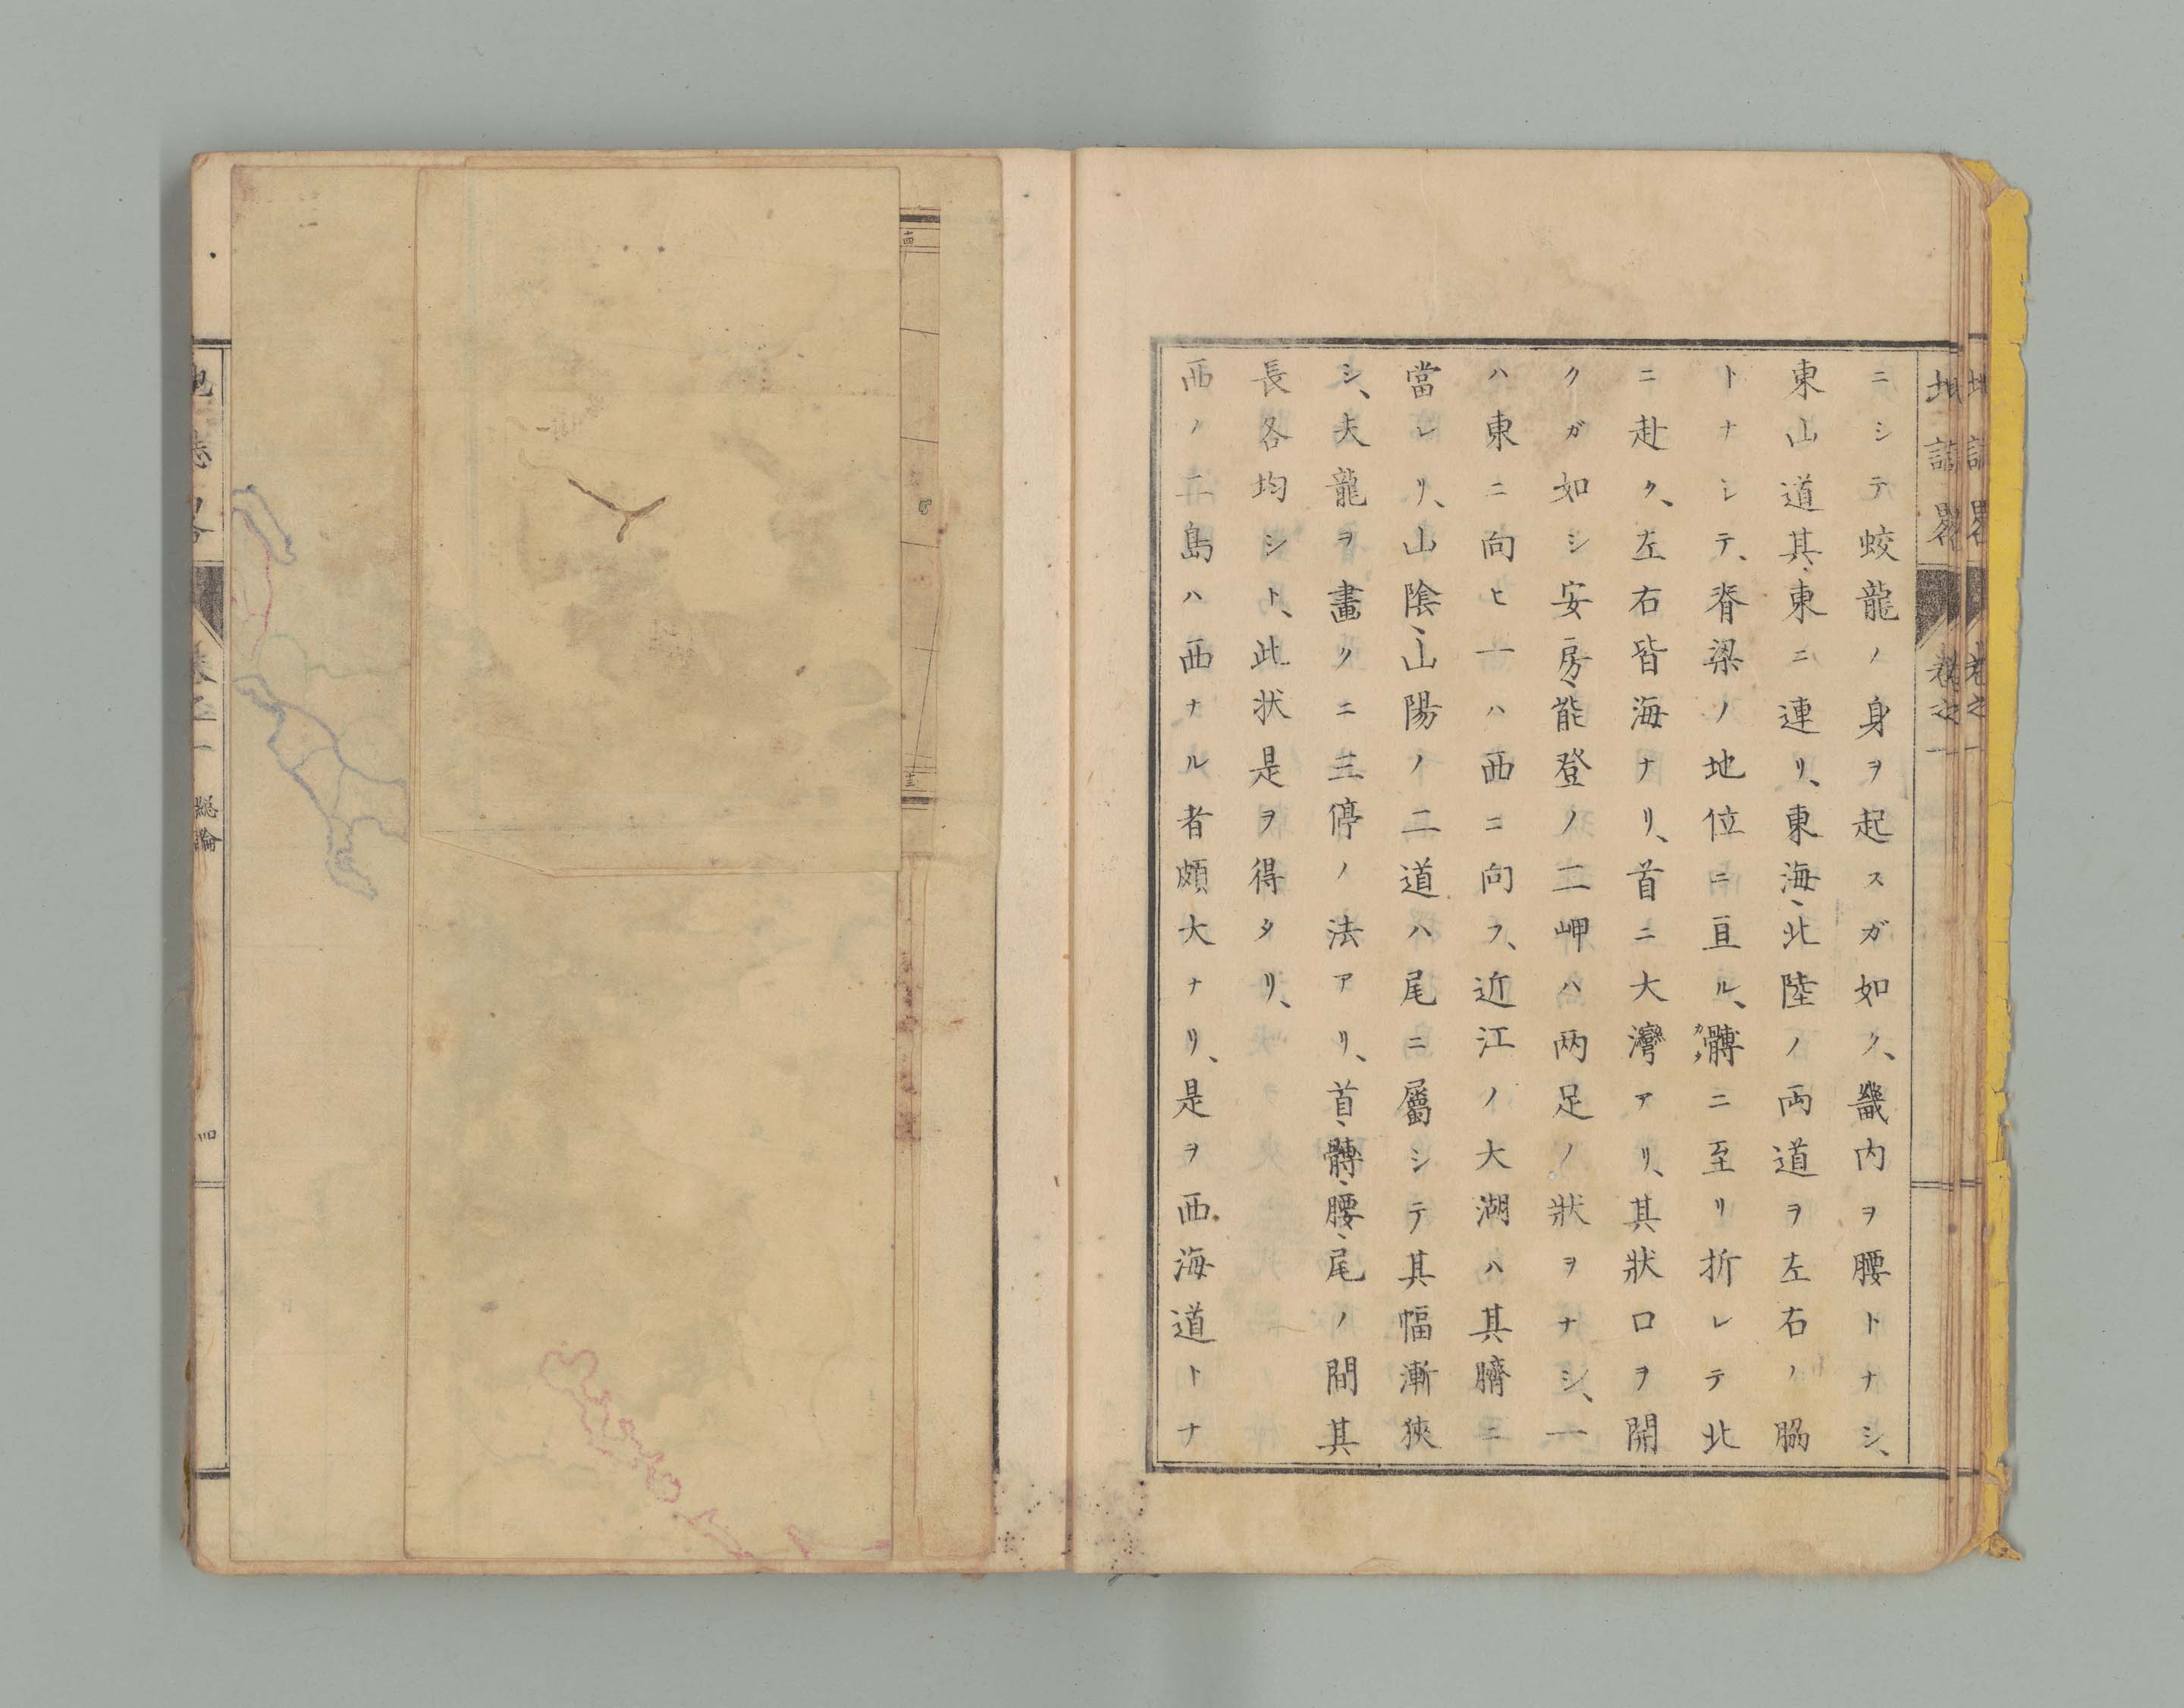 地誌畧 卷之一
地誌畧 卷之一
ニシテ蛟龍ノ身ヲ起スガ如ク、畿内ヲ腰トナシ、
東山道其東ニ連リ、東海、北陸ノ両道ヲ左右ノ脇
トナシテ、脊梁ノ地位ニ亘ル、髆カタニ至リ折レテ北
ニ赴ク、左右皆海ナリ、首ニ大灣アリ、其狀口ヲ開
クガ如シ安房、能登ノ二岬ハ两足ノ狀ヲナシ、一
ハ東ニ向ヒ一ハ西ニ向フ、近江ノ大湖ハ其臍ニ
當レリ、山陰、山陽ノ二道ハ尾ニ屬シテ其幅漸狹
シ、夫龍ヲ畫クニ三停ノ法アリ、首、髆、腰、尾ノ間其
長各均シト、此状是ヲ得タリ、
西ノ二島ハ西ナル者頗大ナリ、是ヲ西海道トナ
十四
十三
地誌畧 卷之一 総論 四